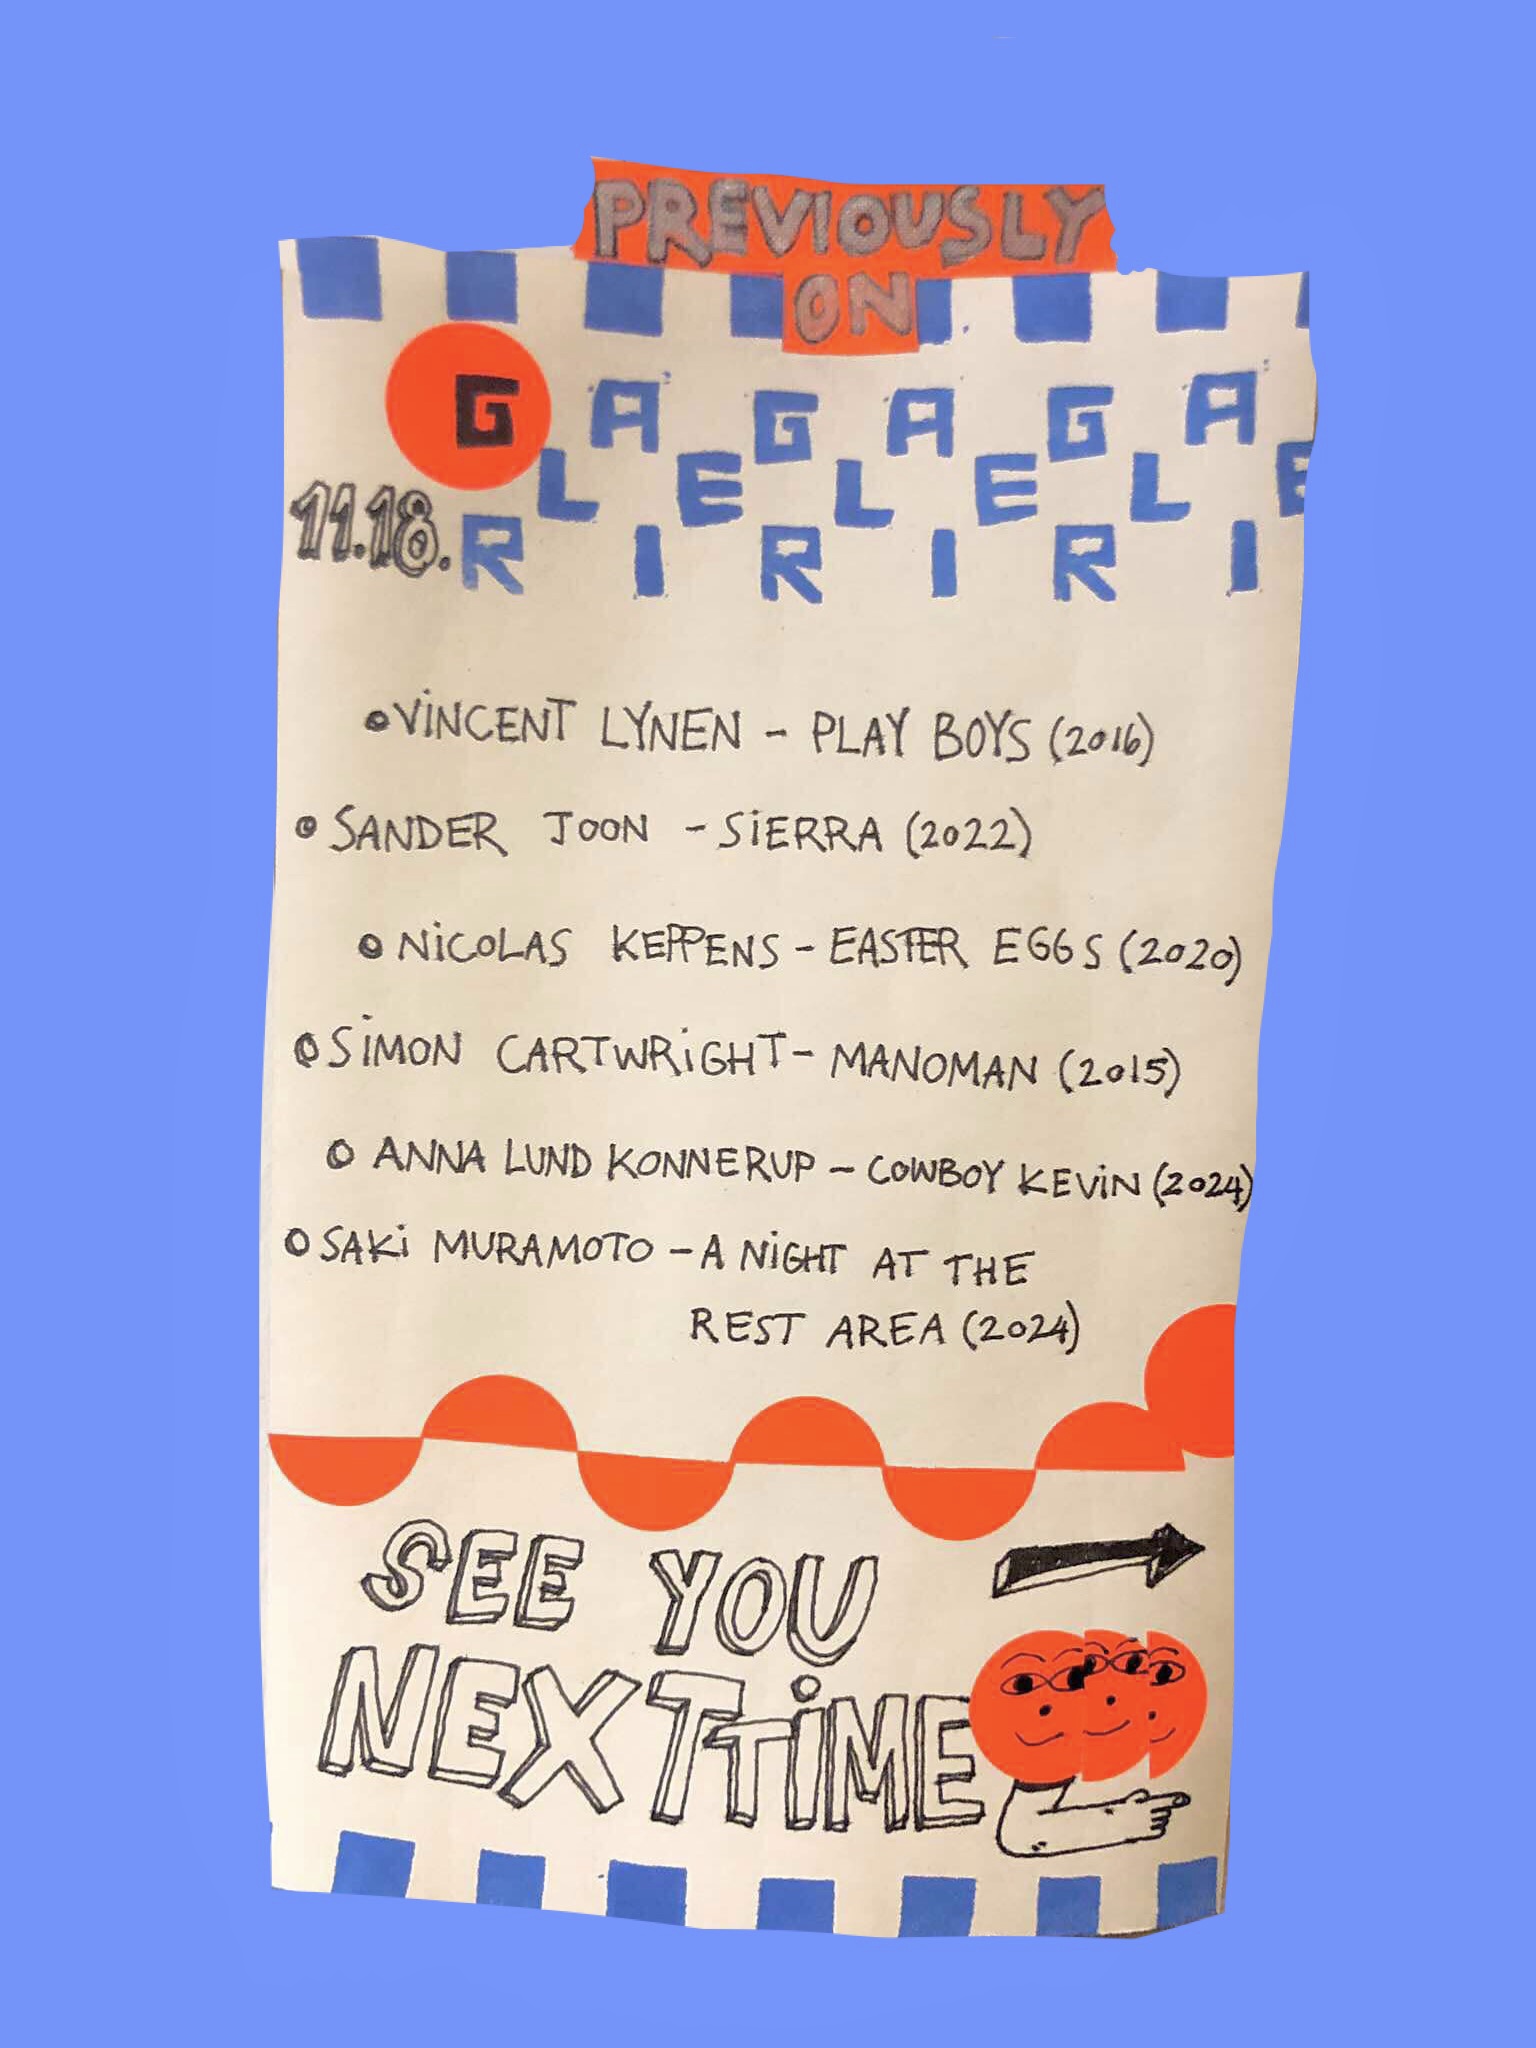 PREVIOUSLY
ON
G A G A G A
L E L E L E
11.18. R I R I R I
VINCENT LYNEN - PLAY BOYS (2016)
SANDER JOON - SIERRA (2022)
NICOLAS KEPPENS - EASTER EGGS (2020)
SIMON CARTWRIGHT - MANOMAN (2015)
ANNA LUND KONNERUP - COWBOY KEVIN (2024)
SAKI MURAMOTO - A NIGHT AT THE
REST AREA (2024)
SEE YOU
NEXT TIME